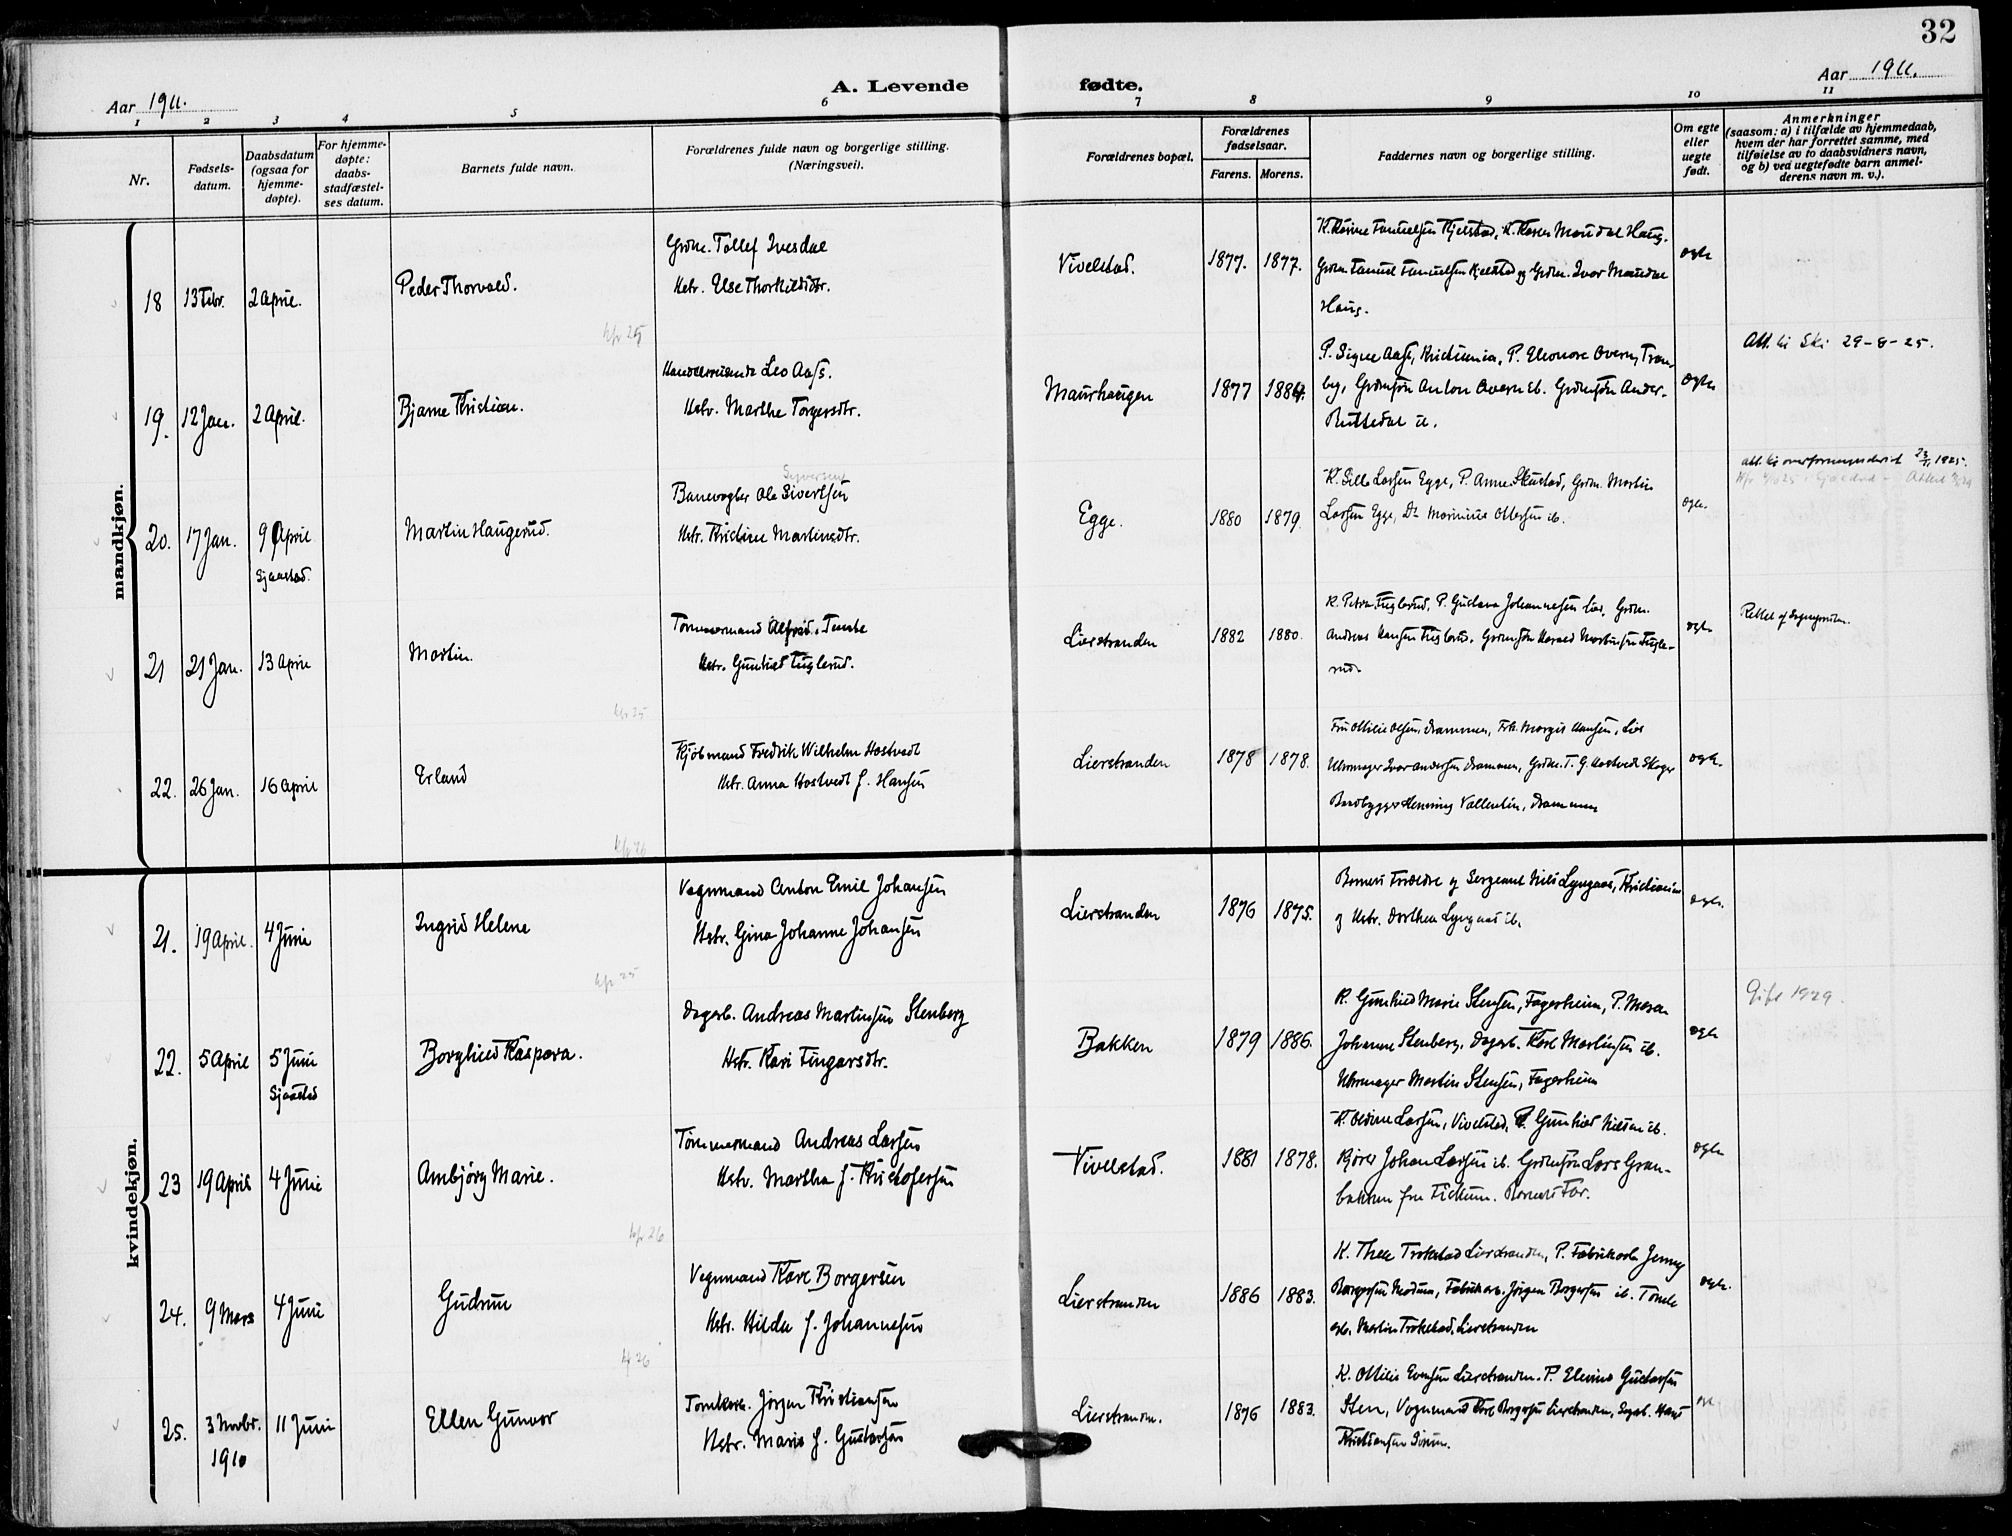 32
Aar 1911.
A. Levende fødte.
Aar 1911.
1 2 3 4 5 6 7 8 9 10 11
Nr.
Fødsels-
datum.
Daabsdatum
(ogsaa for
hjemme-
døpte).
For hjemme-
døpte:
daabs-
stadfæstel-
ses datum.
Barnets fulde navn.
Forældrenes fulde navn og borgerlige stilling.
(Næringsvei).
Forældrenes bopæl.
Forældrenes
fødselsaar.
Farens. Morens.
Faddernes navn og borgerlige stilling.
Om egte
eller
uegte
født.
Anmerkninger
(saasom: a) i tilfælde av hjemmedaab,
hvem der har forrettet samme, med
tilføielse av to daabsvidners navn,
og b) ved uegtefødte barn anmel-
derens navn m. v.).
mandkjøn.
18 13 Febr. 2 April.
Peder Thorvald.
Grdm. Tollef Ivesdal
Hstr. Else Thorkildsdtr.
Vivelstad.
1877. 1877.
Haug.
egte
19. 12 Jan. 2 April.
Bjarne Kristian.
Handelsreisende Leo Aass.
Hstr. Marthe Torgersdtr.
Maurhaugen
1877 1884.
P. Signe Aass, Kristiania, P. Eleonore Overn, Tran-
by, Grdmsøn Anton Overn ib. Grdmsøn Anders
egte
Att. til Ski 29-8-25.
20. 17 Jan. 9 April
Sjaastad.
Martin Haugerud.
Syversen
Banevogter Ole Sivertsen
Hstr. Kristine Martinsdtr.
Egge.
1880 1879.
Larsen Egge, P. Anne Skustad, Grdm. Martin
Larsen Egge, Do Marinius Ottersen ib.
egte.
21 21 Jan. 13 April
Martin.
Tømmermand Alfred
Hstr. Gunhild Fuglerud.
Lierstranden
1882 1880.
K. Petra Fuglerud, P. Gustava Johannesen Lier, Grdm.
Andreas Hansen Fuglerud, Grdmsøn Harald Martinsen Fugle-
rud.
egte
22. 26 Jan. 16 April
Erland
Kjøbmand Fredrik Wilhelm Hostvedt
Hstr. Anna Hostvedt f. Hansen
Lierstranden
1878 1878.
Fru Ottilie Olsen, Drammen, Frk. Margit Hansen, Lier
Uhrmager Ivar Andersen Drammen, Grdm. T. G. Hostvedt Skoger
Baadbygger Henning Vallentin, Drammen
egte.
kvindekjøn.
21. 19 April. 4 Juni
Ingrid Helene
Vognmand Anton Emil Johansen
Hstr. Gina Johanne Johansen
Lierstranden
1876 1875.
Barnets Forældre og Sergeant Nils Lyngaas, Kristiania
og Hstr. Dorthea Lyngaas ib.
egte.
22. 5 April 5 Juni
Sjaastad
Borghild Kaspara.
Dagarb. Andreas Martinsen Stenberg
Hstr. Kari Fingarsdtr.
Bakken
1879 1886.
K. Gunhild Marie Stensen, Fagerheim, P. Maren
Johanne Stenberg, Dagarb. Karl Martinsen ib.
Uhrmager Martin Stensen, Fagerheim
egte
Gift 1929.
23 19 April 4 Juni
Ambjørg Marie.
Tømmermand Andreas Larsen
Hstr. Martha f. Kristofersen
Vivelstad.
1881 1878.
K. Oldine Larsen, Vivelstad, P. Gunhild Nilsen ib.
Kjører Johan Larsen ib. Grdmsøn Lars Gran-
bakken fra Fiskum. Barnets Far.
egte
24. 9 Mars 4 Juni
Gudrun
Vognmand Karl Borgersen
Hstr. Hilda f. Johannesen
Lierstranden
1886 1883.
K. Thea Trøkstad Lierstranden, P. Fabrikarb. Jenny
Borgersen Modum, Fabrikarb. Jørgen Borgersen ib. Tomte-
arb. Martin Trøkstad, Lierstranden
egte.
25. 3 Novbr. 11 Juni
1910
Ellen Gunvor
Tomtearb. Jørgen Kristiansen
Hstr. Marie f. Gustavsen
Lierstranden.
1876 1883.
K. Ottilie Evensen Lierstranden. P. Elevine Gustavsen
Sten, Vognmand Karl Borgersen Lierstranden, Dagarb. Hans
Kristiansen